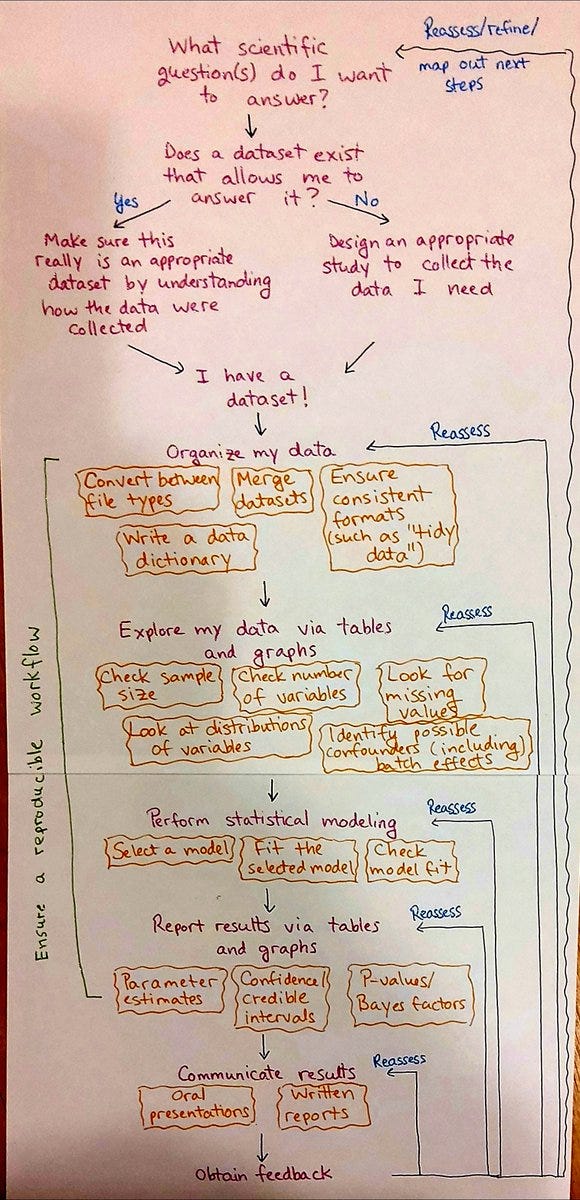 Reassess/refine/
map out next
steps
What scientific
question(s) do I want
to answer?
Does a dataset exist
that allows me to
answer it?
Yes
No
Make sure this
really is an appropriate
dataset by understanding
how the data were
collected
Design an appropriate
study to collect the
data I need
I have a
dataset!
Reassess
Organize my data
Convert between
file types
Merge
datasets
Ensure
consistent
formats
(such as "tidy
data")
Write a data
dictionary
Reassess
Explore my data via tables
and graphs
Check sample
size
Check number
of variables
Look for
missing
values
Look at distributions
of variables
Identify possible
confounders (including)
batch effects
Reassess
Perform statistical modeling
Select a model
Fit the
selected model
Check
model fit
Reassess
Report results via tables
and graphs
Parameter
estimates
Confidence/
credible
intervals
P-values/
Bayes factors
Ensure a reproducible workflow
Reassess
Communicate results
Oral
presentations
Written
reports
Obtain feedback